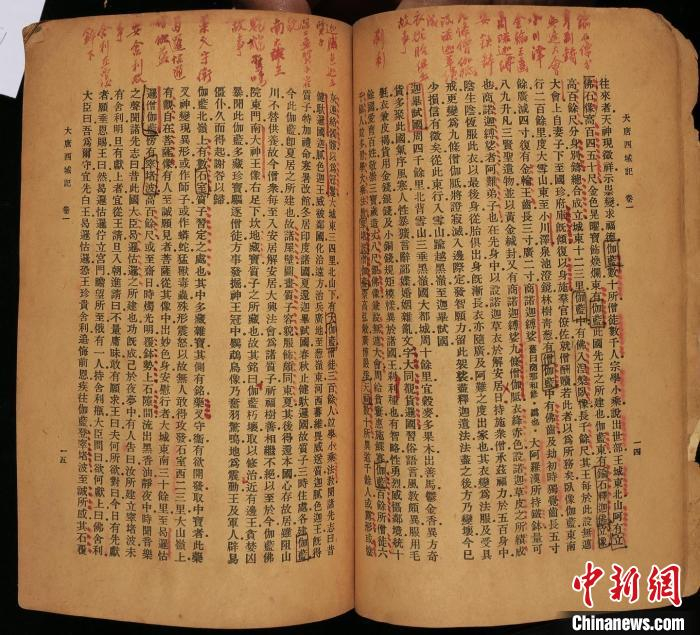 往來者天神現徵祥示祟變求福德伽藍數十所僧徒數千人宗學小乘說出世部王城東北山阿有立
佛石像高百四五十尺金色晃曜寶飾煥爛東有伽藍此國先王之所建也伽藍東有鍮石釋迦佛立像
高百餘尺分身別鑄總合成立城東十二三里伽藍中有佛入涅槃臥像長千餘尺其王每於此設無遮
大會上自妻子下至國珍府庫既傾復以身施羣官僚佐就僧酬贖若此者以爲所務矣臥像伽藍東南
行二百餘里度大雪山東至小川澤泉池澄鏡林樹青葱有僧伽藍中有佛齒及劫初時獨覺齒長五寸
餘廣減四寸復有金輪王齒長三寸廣二寸商諾迦縛娑舊曰商那和修訛也大阿羅漢所持鐵鉢量可
八九升凡三賢聖遺物並以黃金緘封又有商諾迦縛娑九條僧伽胝衣絳赤色設諾迦草皮之所績成
也商諾迦縛娑者阿難弟子也在先身中以設諾迦草衣於解安居日持施衆僧承茲福力於五百身中
陰生陰恆服此衣以最後身從胎俱出身既漸長衣亦隨廣及阿難之度出家也其衣變爲法服及受具
戒更變爲九條僧伽胝將證寂滅入邊際定發智願力留此袈裟盡釋迦遺法法盡之後方乃變壞今已
少損信有徵矣從此東行入雪山踰越黑嶺至迦畢試國
迦畢試國周四千餘里北背雪山三垂黑嶺國大都城周十餘里宜穀麥多果木出善馬鬱金香異方奇
貨多聚此國氣序風寒人性暴獷言辭鄙媟婚姻雜亂文字大同覩貨邏國習俗語言風教頗異服用毛
氎衣兼皮褐貨用金錢銀錢及小銅錢規矩模樣異於諸國王窣利種也有智略性勇烈威懾鄰境統十
餘國愛育百姓敬崇三寶歲造丈八尺銀佛像兼設無遮大會周給貧窶惠施鰥寡伽藍百餘所僧徒六
天祠數十所異道千餘人或露形或塗
大唐西域記 卷一
一四
大城東三四里北山下有大伽藍僧徒三百餘人並學小乘法教聞諸先志曰昔
健馱邏國迦膩色迦王威被鄰國化洽遠方治兵廣地至葱嶺東河西蕃維畏威送質迦膩色迦王既得
質子特加禮命寒暑改館冬居印度諸國夏還迦畢試國春秋止健馱邏國故質子三時住處各建伽藍
今此伽藍即夏居之所建也故諸屋壁圖畫質子容貌服飾頗同東夏其後得還本國心存故居雖阻山
川不替供養故今僧衆每至入安居解安居大興法會爲諸質子祈福樹善相繼不絕以至於今伽藍佛
院東門南大神王像右足下坎地藏寶質子之所藏也故其銘曰伽藍朽壞取以修治近有邊王貪婪凶
暴聞此伽藍多藏珍寶驅逐僧徒方事發掘神王冠中鸚鵡鳥像乃奮羽驚鳴地爲震動王及軍人辟易
僵仆久而得起謝咎以歸
伽藍北嶺上有數石室質子習定之處也其中多藏雜寶其側有銘藥叉守衛有欲開發取中寶者此藥
叉神變現異形或作師子或作蟒蛇猛獸毒蟲殊形震怒以故無人敢得攻發石室西二三里大山嶺上
有觀自在菩薩像有人至誠願見者菩薩從其像中出妙色身安慰行者大城東南三十餘里至曷邏怙
邏僧伽藍傍有窣堵波高百餘尺或至齋日時燭光明覆鉢勢上石隙間流出黑香油靜夜中時聞音樂
之聲聞諸先志曰昔此國大臣曷邏怙邏之所建也功既成已於夜夢中有人告曰汝所建立窣堵波未
有舍利明旦有獻上者宜從王請旦入朝進請曰不量庸昧敢有願求王曰夫何所欲對曰今日有先獻
者願垂恩賜王曰然曷邏怙邏佇立宮門瞻望所至俄有一人持舍利瓶大臣問曰欲何獻上曰佛舍利
大臣曰吾爲爾守宜先白王曷邏怙邏恐王珍貴舍利追悔前恩疾往伽藍登窣堵波至誠所感其石覆
大唐西域記 卷一
一五
中新網
Chinanews.com